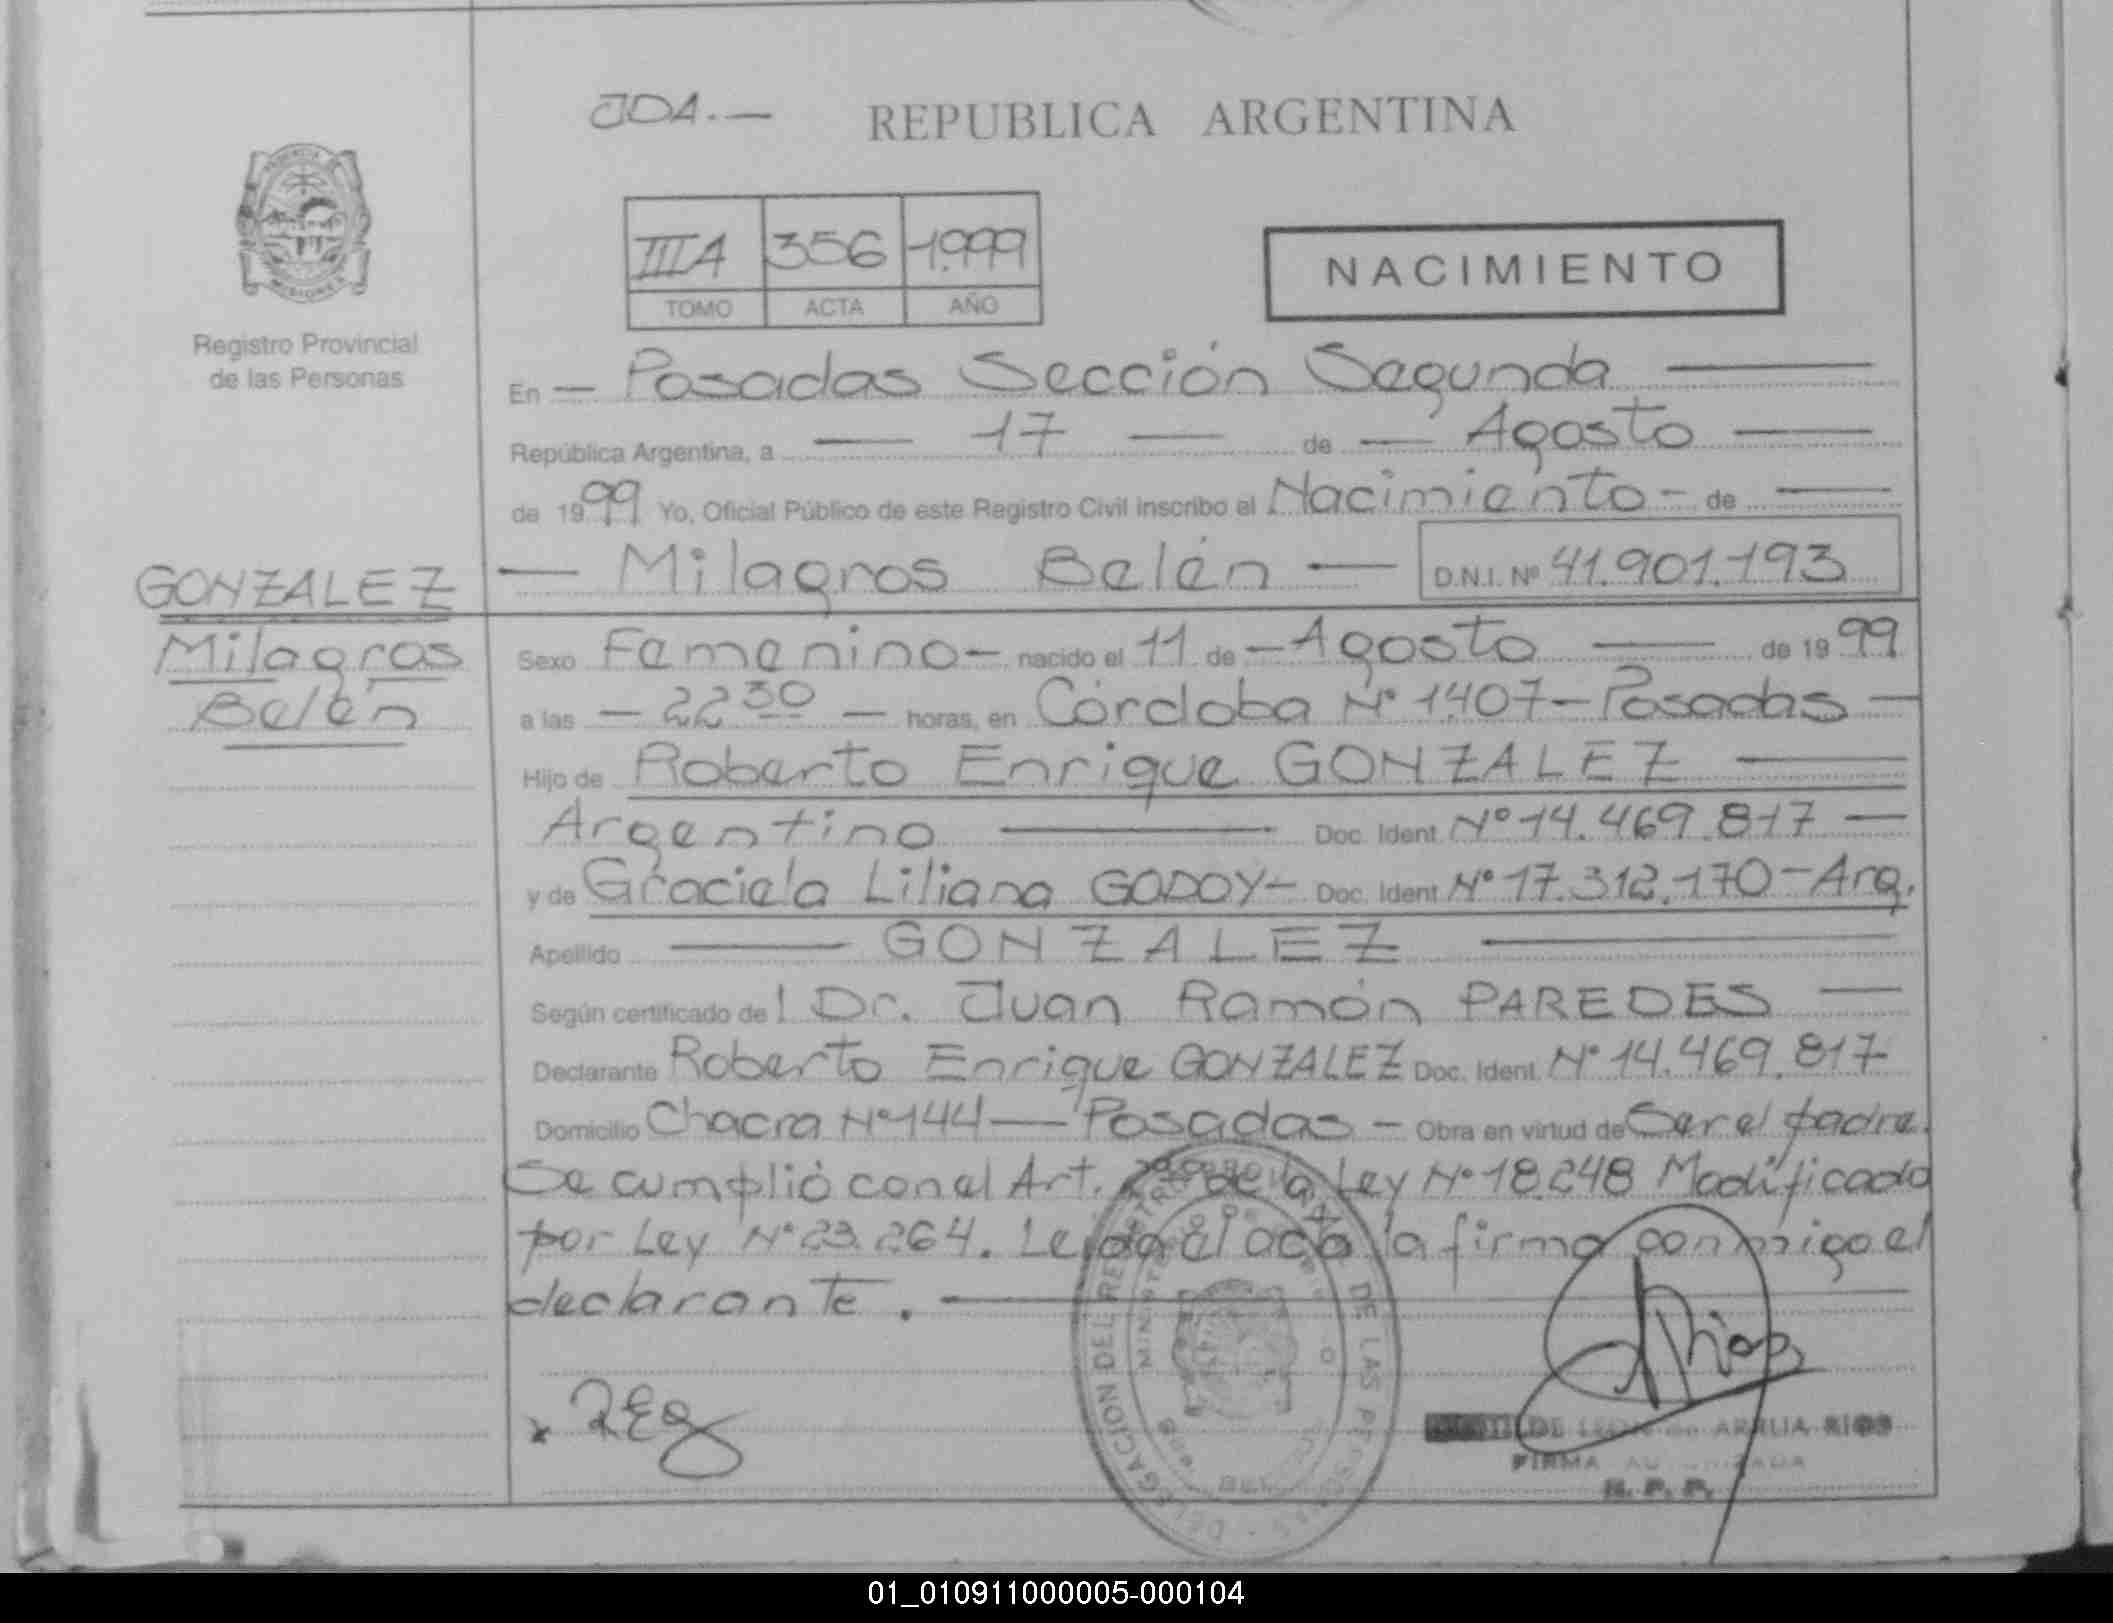 JDA.— REPUBLICA ARGENTINA
IIIA 356 1.999
TOMO ACTA AÑO
NACIMIENTO
Registro Provincial
de las Personas
En — Posadas Sección Segunda —
República Argentina, a — 17 — de — Agosto —
de 1999 Yo, Oficial Público de este Registro Civil inscribo el Nacimiento - de —
— Milagros Belén — D.N.I. Nº 41.901.193
GONZALEZ
Milagros
Belén
Sexo Femenino - nacido el 11 de - Agosto — de 1999
a las - 22 30 - horas, en Córdoba Nº 1.407 - Posadas -
Hijo de Roberto Enrique GONZALEZ —
Argentino — Doc. Ident. Nº 14.469.817 —
y de Graciela Liliana GODOY - Doc. Ident. Nº 17.312.170 - Arg.
Apellido — GONZALEZ —
Según certificado del Dr. Juan Ramón PAREDES —
Declarante Roberto Enrique GONZALEZ Doc. Ident. Nº 14.469.817
Domicilio Chacra Nº 144 — Posadas - Obra en virtud de Ser el padre.
Se cumplió con el Art. de la Ley Nº 18.248 Modificado
por Ley Nº 23.264. Leida el acta la firma conmigo el
declarante. —
DELEGACION DEL REGISTRO DE LAS PERSONAS
DE LEON de ARALIA RIOS
FIRMA AUTORIZADA
R. P. P.
01_010911000005-000104